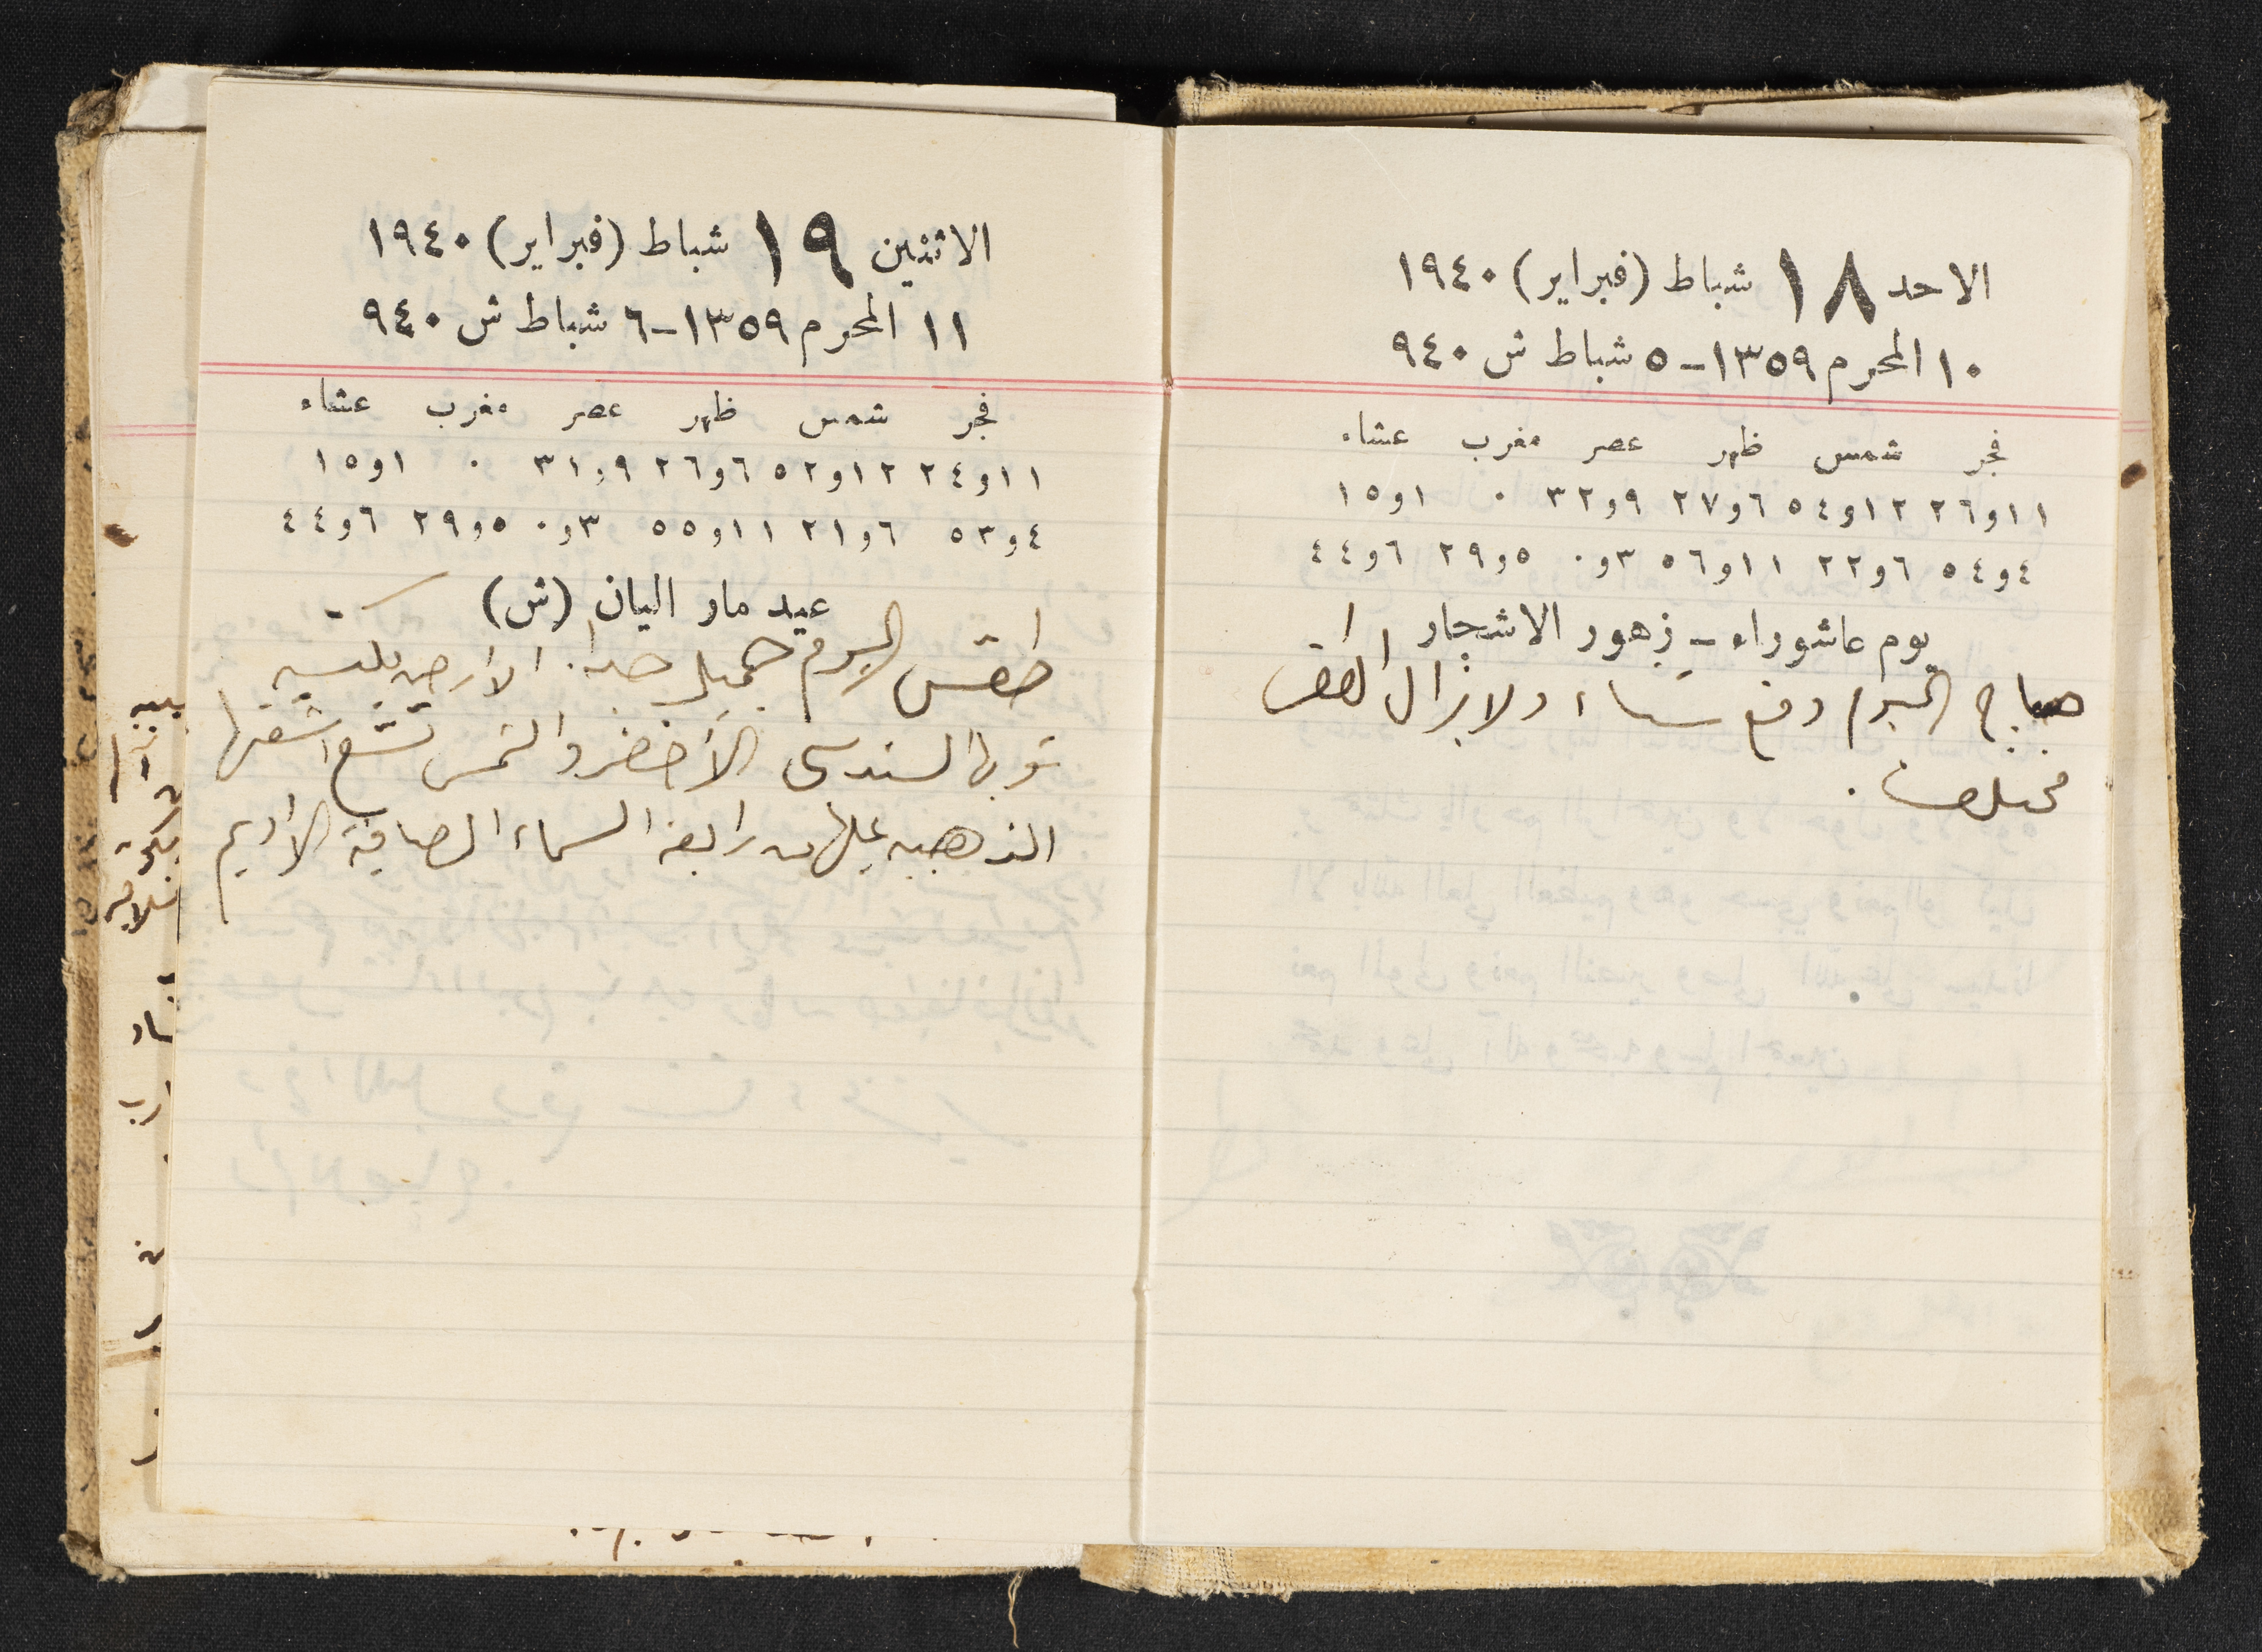 الاحد ١٨ شباط (فبراير) ١٩٤٠
١٠ المحرم ١٣٥٩-٥ شباط ش ٩٤٠
فجر شمس ظهر عصر مغرب عشاء
١١و٢٦ ١٢و٥٤ ٦و٢٧ ٩و٣٢ ٠ ١و١٥
٤و٥٤ ٦و٢٢ ١١و٥٦ ٣و٠ ٥و٢٩ ٦و٤٤
يوم عاشوراء - زهور الاشجار
صباح اليوم وقع شتاء ولا يزال الطقس
مختلفا.
الاثنين ١٩ شباط (فبراير) ١٩٤٠
١١ المحرم ١٣٥٩-٦ شباط ش ٩٤٠
فجر شمس ظهر عصر مغرب عشاء
١١و٢٤ ١٢و٥٢ ٦و٢٦ ٩و٣١ ٠ ١و١٥
٤و٥٣ ٦و٢١ ١١و٥٥ ٣و٠ ٥و٢٩ ٦و٤٤
عيد مار اليان (ش)
طقس اليوم جميل جدا. الارض
ثوبها السندسي الأخضر والشمس تشع اشعتها
الذهبيه عليها من رابعة السماء الصافية الاديم